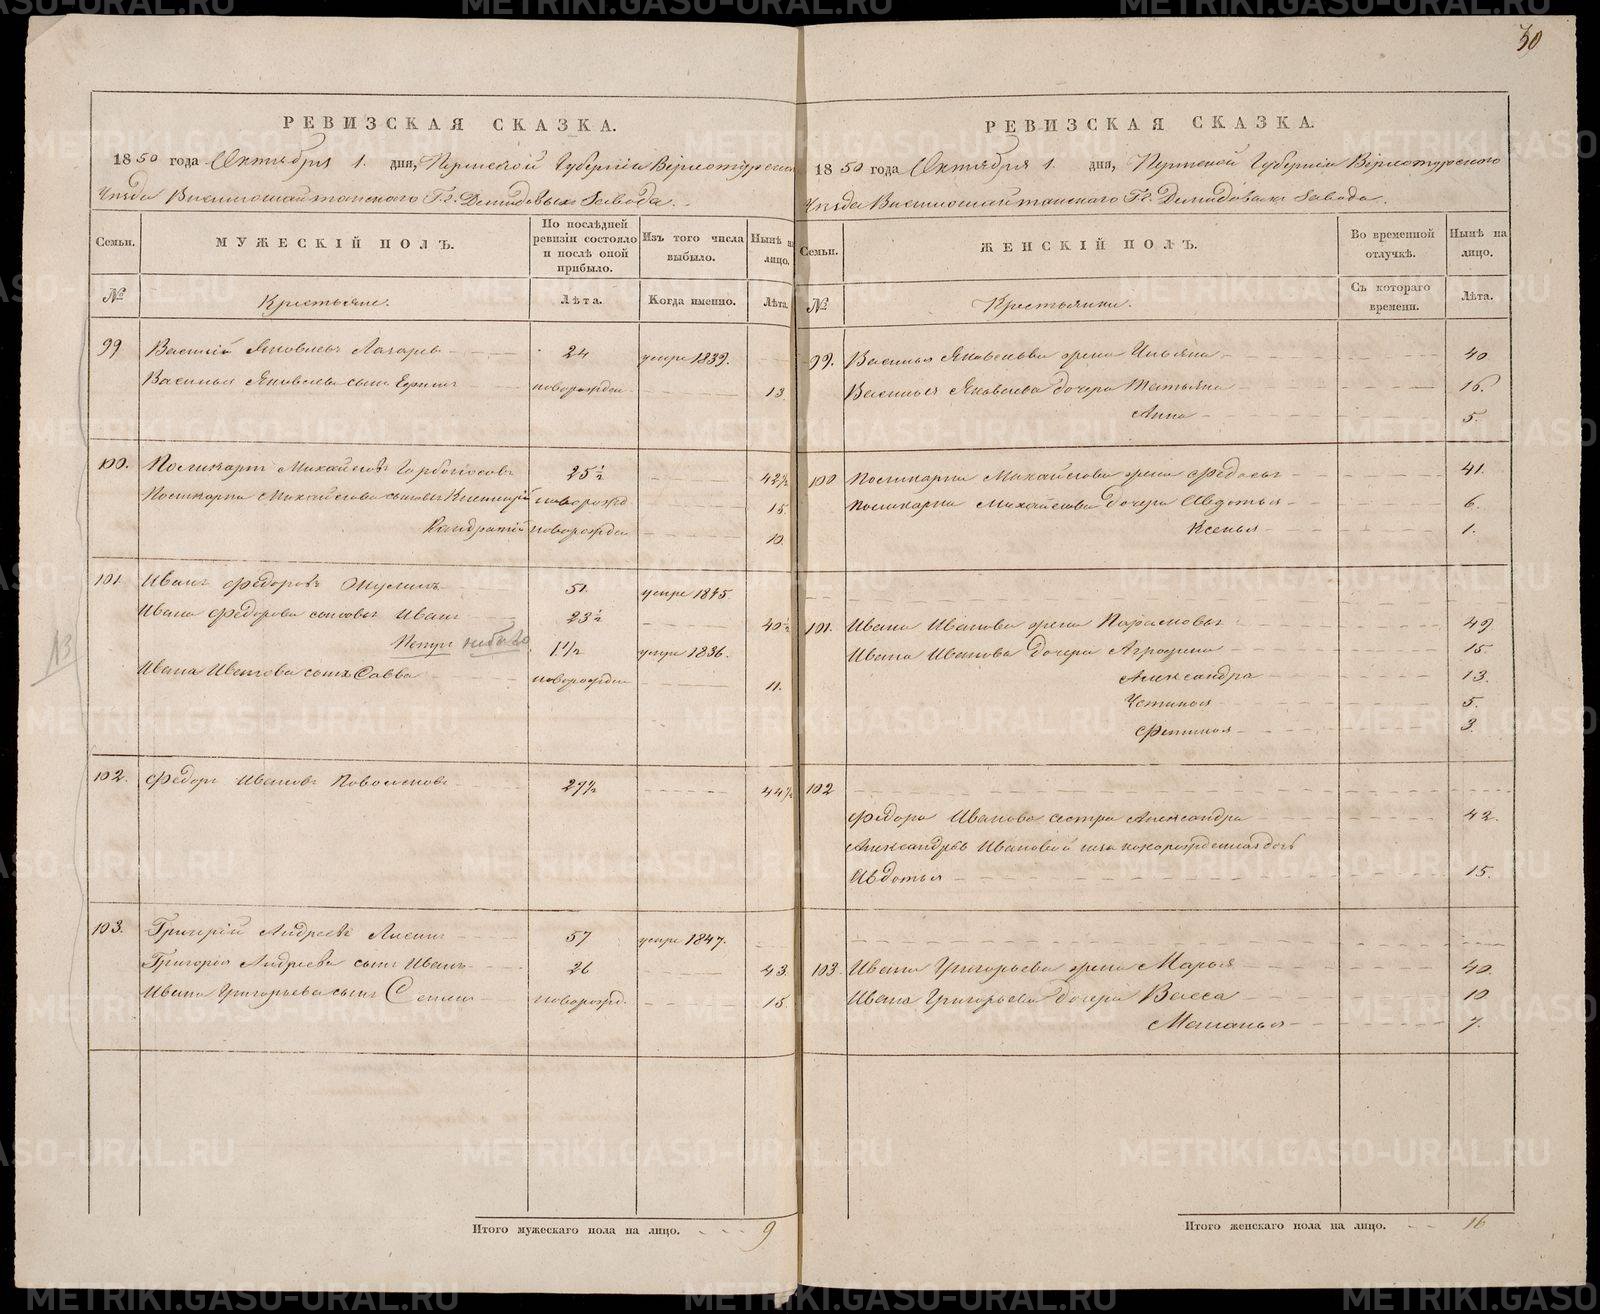 30
РЕВИЗСКАЯ СКАЗКА.
1850 года Октября 1. дня, Пермской Губернии Верхотурскаго
Уезда Висимошайтанского Гг. Демидовых Завода.
Семьи.
МУЖЕСКІЙ ПОЛЪ.
По послѣдней ревизіи состояло и послѣ оной прибыло.
Изъ того числа выбыло.
Нынѣ на лицо.
№
Крестьяне.
Лѣта.
Когда именно.
Лѣта.
99 Василій Яковлевъ Лазаревъ 24 умре 1839.
Василья Яковлева сынъ Ефимъ новорожден 13.
100. Поликарпъ Михайловъ Горбоносовъ 25½ 42½
Поликарпа Михайлова сыновья новорожд 15.
Кандратій новорожден 10.
101 Иванъ Федоровъ 51. умре 1845.
Ивана Федорова сыновья Иванъ 23½ 40½
Петръ 1½ умре 1836.
Ивана Иванова сынъ Савва новорожден 11.
13
102. Федоръ Ивановъ 27½ 44½
103. Григорій Андреевъ 57 умре 1847.
Григорья Андреева сынъ Иванъ 26 43.
Ивана Григорьева сынъ Семенъ новорожд. 15.
Итого мужескаго пола на лицо. 9
РЕВИЗСКАЯ СКАЗКА.
1850 года Октября 1. дня, Пермской Губернии Верхотурского
Уезда Висимошайтанского Гг. Демидовых Завода.
Семьи.
ЖЕНСКІЙ ПОЛЪ.
Во временной отлучкѣ.
Нынѣ на лицо.
№
Крестьянки.
Съ котораго времени.
Лѣта.
99. Василья Яковлева жена Ульяна 40
Василья Яковлева дочери Татьяна 16.
Анна 5.
100 Поликарпа Михайлова жена Федосья 41.
Поликарпа Михайлова дочери Авдотья 6.
Ксенья 1.
101. Ивана Иванова жена Парасковья 49.
Ивана Иванова дочери Аграфина 15.
Александра 13.
Устинья 5.
Фетинья 3.
102
Федора Иванова сестра Александра 42.
Александры Ивановой незаконорожденная дочь
Авдотья 15.
103. Ивана Григорьева жена Марья 40.
Ивана Григорьева дочери Васса 10
Меланья 7.
Итого женскаго пола на лицо. 16
METRIKI.GASO-URAL.RU